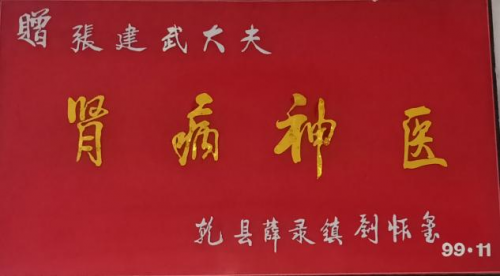 贈 張建武大夫
肾病神医
乾县薛录鎮劉怀玺
99·11